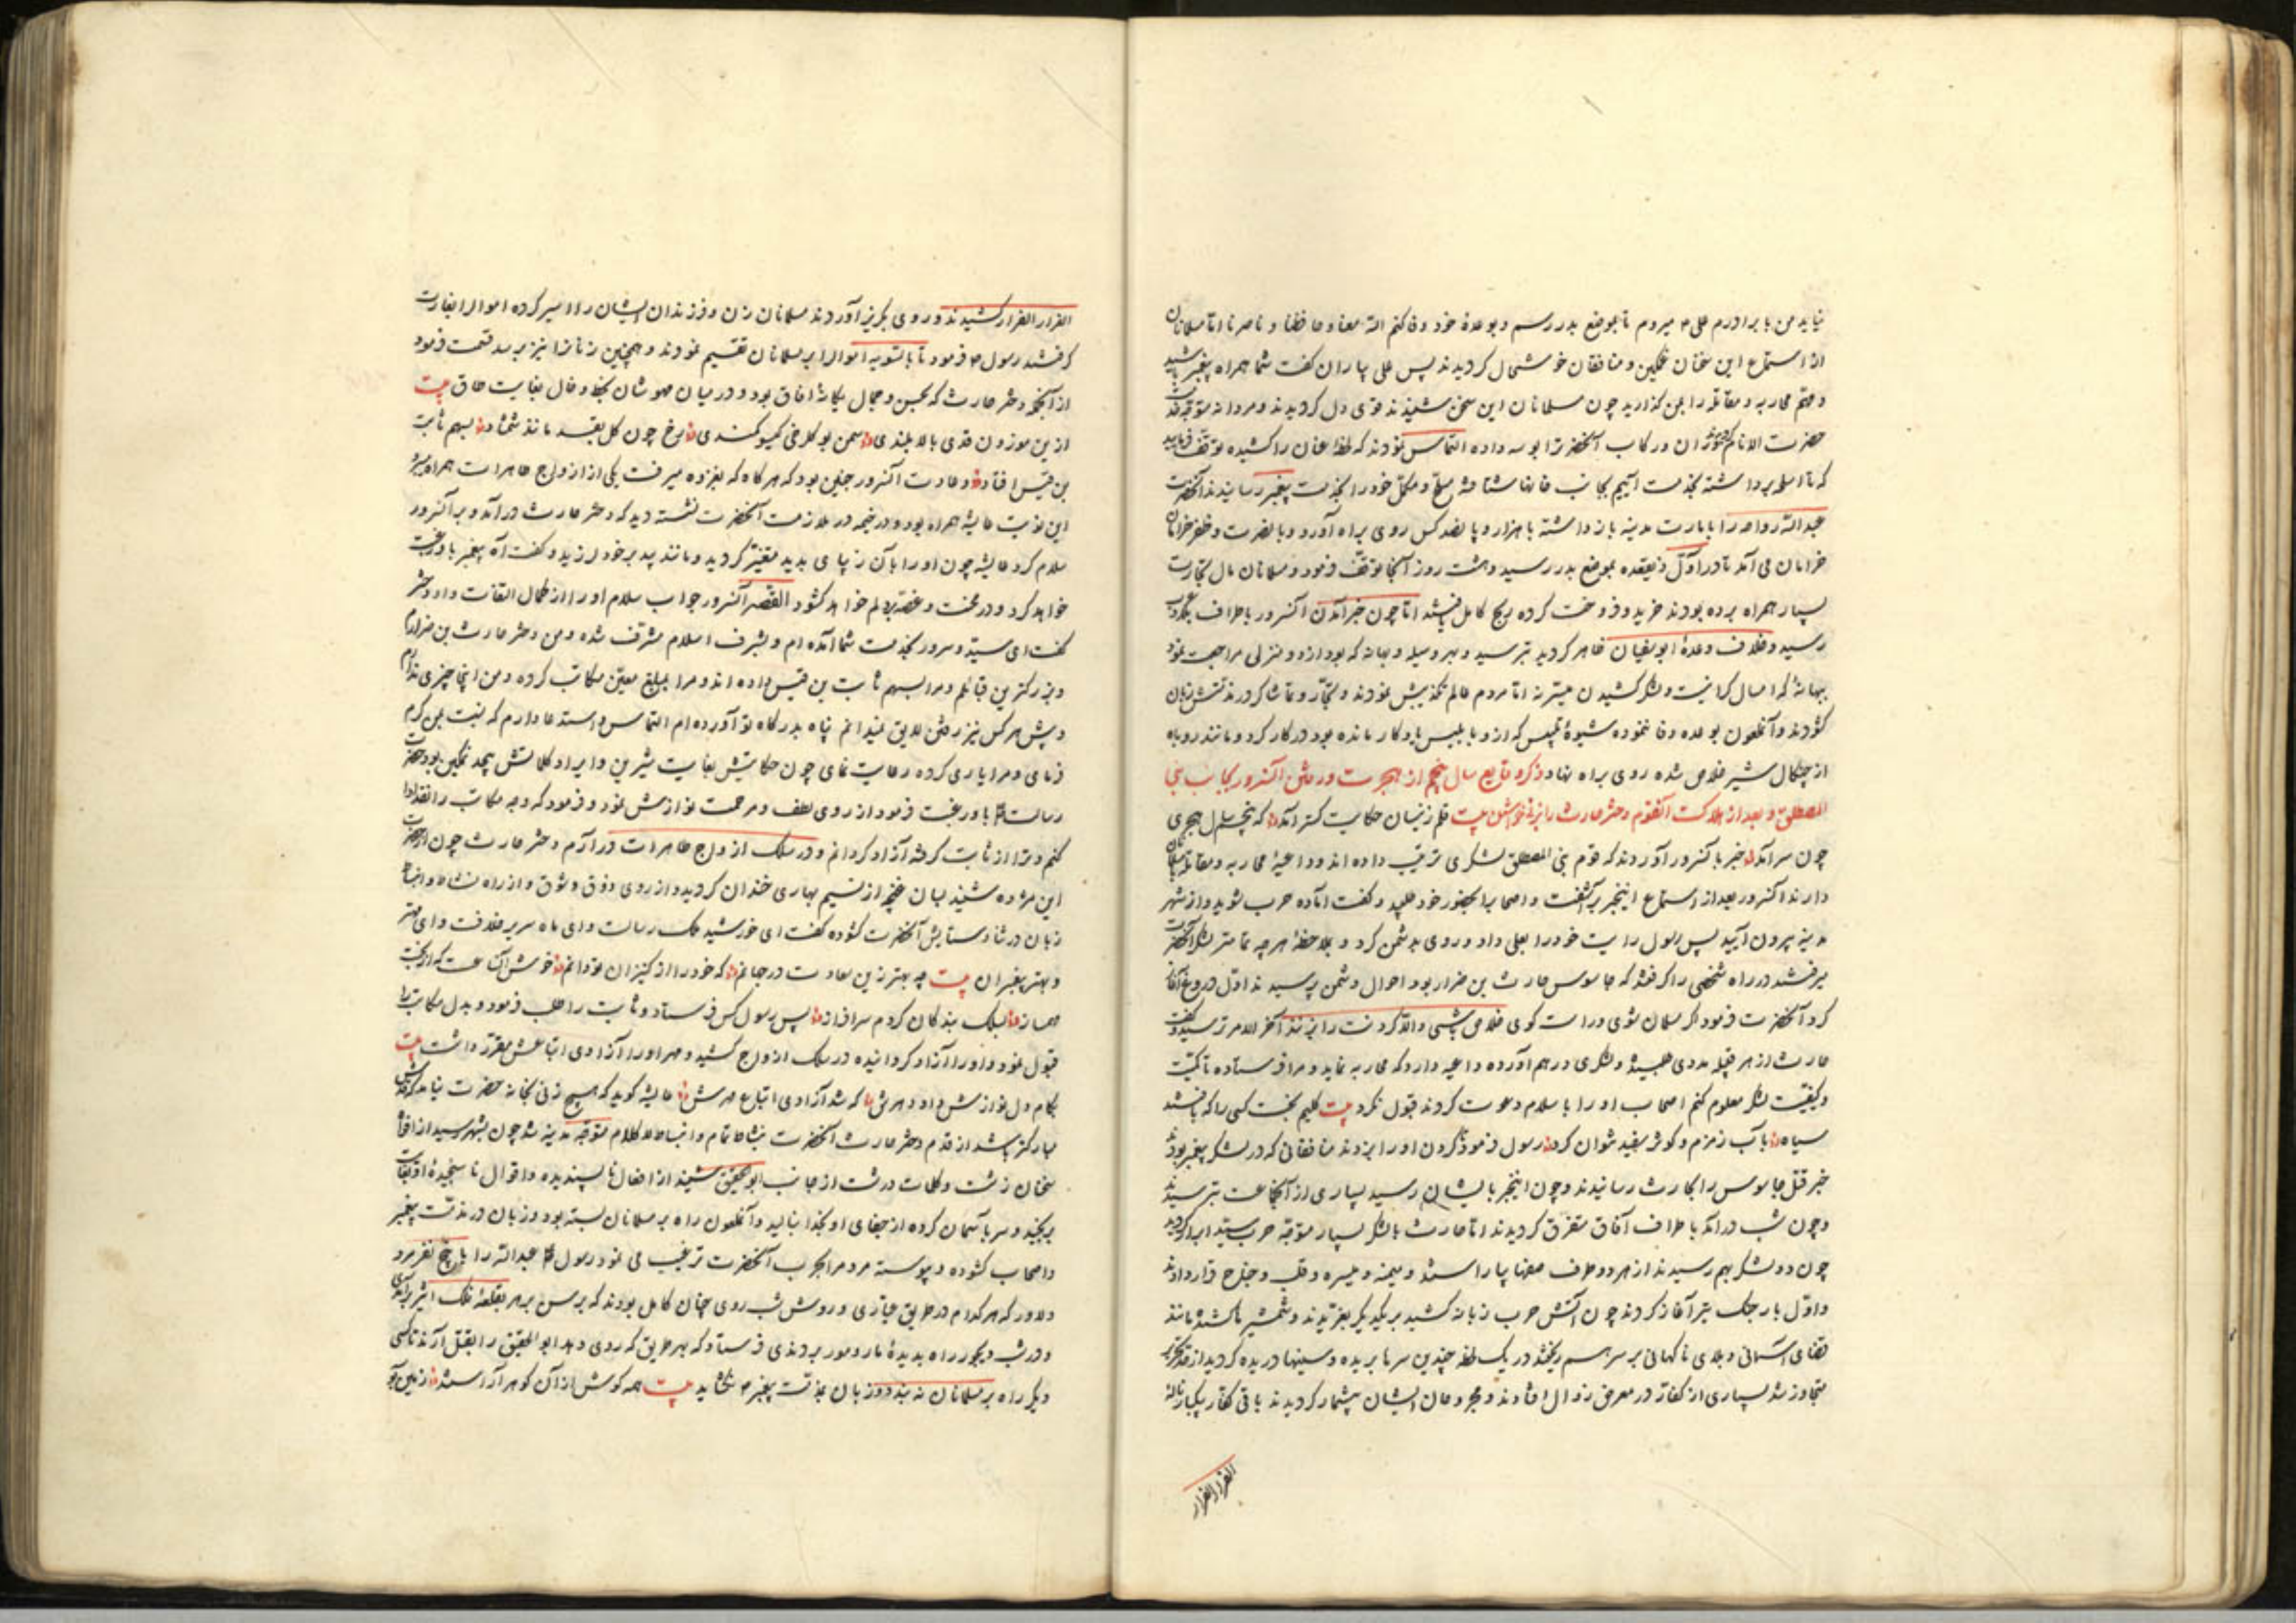 نیاید من با برادرم علی ع میروم تا بموضع بدر رسم و بوعدهٔ خود وفا کنم الله معنا و حافظنا و ناصرنا اما مسلمانان
از استماع این سخنان غمکین و منافقان خوشحال کردیدند پس علی بیاران کفت شما همراه پیغمبر باشید
و مهم محاربه و مقاتله را بمن کذارید چون مسلمانان این سخن شنیدند قوی دل کردیدند و مردانه متوجه شدند
حضرت الانام ان در رکاب آنحضرت را بوسه داده التماس نمودند که لحظهٔ عنان را کشیده توقف فرمایید
که تا اسلحه برداشته بخدمت آییم بجانب خانها شتافته مسلح و مکمل خود را بخدمت پیغمبر رسانیدند آنحضرت
عبدالله رواحه را بامارت مدینه بازداشته با هزار و پانصد کس روی براه آورد و با نصرت و ظفر خرامان
خرامان می آمد تا در اول ذیقعده بموضع بدر رسید و هشت روز آنجا توقف فرمود و مسلمانان مال تجارت
بسیار همراه برده بودند خرید و فروخت کرده بربح کامل یافتند اما چون خبر آمدن آنسرور باطراف بلاد عرب
رسید و خلاف وعدهٔ ابوسفیان ظاهر کردید بترسید و بهر وسیله و بهانه که بود از دو منزلی مراجعت نمود
بهانهٔ که امسال کرانیست و لشکر کشیدن میسر نه اما مردم عالم تکذیبش نمودند و تجار و تماشاکر در مذمتش زبان
کشودند و آنملعون بوعده وفا ننموده شیوهٔ تلبیس که ازو با بلیس یادکار مانده بود در کار کرد و مانند روباه
از چنکال شیر خلاص شده روی براه نهاد ذکر وقایع سال پنجم از هجرت و رفتن آنسرور بجانب بنی
المصطلق و بعد از هلاکت آنقوم دختر حارث را بزنی خواستن بیت قلم زنیسان حکایت کستر آمد که پنجم سال هجری
چون سرآمد خبر بآنسرور آوردند که قوم بنی المصطلق لشکری ترتیب داده اند و داعیهٔ محاربه و مقاتله با مسلمانان
دارند آنسرور بعد از استماع اینخبر برآشفت و اصحاب را بحضور خود طلبید و کفت آماده حرب شوید و از شهر
مدینه بیرون آیید پس رسول رایت خود را بعلی داد و روی بدشمن کرد و بملاحظهٔ هرچه تمامتر لشکر آنحضرت
میرفتند در راه شخصی را کرفتند که جاسوس حارث بن ضرار بود احوال دشمن پرسیدند اول دروغ آغاز
کرد آنحضرت فرمود اکر مسلمان شوی و راست کوی خلاص یابی والا کردنت را بزنند آخر الامر ترسید و کفت
حارث از هر قبیله مددی طلبیده و لشکری درهم آورده داعیه دارد که محاربه نماید و مرا فرستاده تا کمیت
و کیفیت لشکر معلوم کنم اصحاب او را باسلام دعوت کردند قبول نکرد بیت کلیم بخت کسی را که بافتند
سیاه بآب زمزم و کوثر سفید نتوان کرد رسول فرمود کردن او را بزدند منافقانی که در لشکر پیغمبر بودند
خبر قتل جاسوس را بحارث رسانیدند و چون اینخبر بایشان رسید بسیاری از آنجماعت بترسیدند
و چون شب درآمد باطراف آفاق متفرق کردیدند اما حارث با لشکر بسیار متوجه حرب سید ابرار کردید
چون دو لشکر بهم رسیدند از هر دو طرف صفها بیاراستند و میمنه و میسره و قلب و جناح قرار دادند
و اول بار جنک بتیر آغاز کردند چون آتش حرب زبانه کشید بر یکدیکر بغریدند و شمشیرها کشیده مانند
قضای آسمانی و بلای ناکهانی بر سر هم ریختند در یک لحظه چندین سرها بریده و سینها دریده کردید از حد
متجاوز شد بسیاری از کفار در معرض زوال افتادند و مجروحان ایشان بیشمار کردیدند باقی کفار یکبار ناله
الفرار الفرار
الفرار الفرار کشیدند و روی بکریز آوردند مسلمانان زن و فرزندان ایشان را اسیر کرده اموال را بغارت
کرفتند رسول ع فرمود تا بالسویه اموال را بر مسلمانان تقسیم نمودند و همچنین زنان را نیز بر سه قسمت فرمود
از آنجمله دختر حارث که بحسن و جمال یکانهٔ آفاق بود و در میان مهوشان بخط و خال بغایت طاق بیت
ازین موزون قدی بالا بلندی سمن بو کلرخی کیسو کمندی برخ چون کل بقد مانند شمشاد بسهم ثابت
بن قیس افتاد و عادت آنسرور چنین بود که هرکاه که بغزوه میرفت یکی از ازواج طاهرات همراه میبرد
این نوبت عایشه همراه بود و در خیمه در ملازمت آنحضرت نشسته دید که دختر حارث درآمد و بر آنسرور
سلام کرد عایشه چون او را بآن زیبایی بدید متغیر کردید و مانند بید بر خود لرزید و کفت آه پیغمبر باو رغبت
خواهد کرد و در محنت و غصه بر دلم خواهد کشود القصه آنسرور جواب سلام او را از کمال التفات داد دختر
کفت ای سید و سرور بخدمت شما آمده ام و بشرف اسلام مشرف شده و من دختر حارث بن ضرارم
و بزرکترین قبایلم و مرا بسهم ثابت بن قیس داده اند و مرا بمبلغ معین مکاتب کرده و من اینجا چیزی ندارم
و پیش هر کس نیز رفتن لایق نمیدانم پناه بدرکاه تو آورده ام التماس و استدعا دارم که نسبت بمن کرم
فرمای و مرا یاری کرده رعایت نمای چون حکایتش بغایت شیرین و ایراد کلماتش بیحد نمکین بود حضرت
رسالت باو رغبت فرمود از روی لطف و مرحمت نوازش نمود و فرمود که وجه مکاتب را نقد ادا
کنم و ترا از ثابت کرفته آزاد کردانم و در سلک ازواج طاهرات درآرم دختر حارث چون از آنحضرت
این مژده شنید بسان غنچه از نسیم بهاری خندان کردید و از روی ذوق و شوق و از راه نشاط و انبساط
زبان در ثنا و ستایش آنحضرت کشوده کفت ای خورشید فلک رسالت و ای ماه سریر خلافت و ای مهتر
و بهتر پیغمبران بیت چه بهتر زین سعادت در جهانم که خود را از کنیزان تو دانم خوش آنساعت که از بخت
همایز بسلک بندکان کردم سرافراز پس رسول کس فرستاد و ثابت را طلب فرمود و بدل مکاتب را
قبول نمود و او را آزاد کردانیده در سلک ازواج کشید و مهر او را آزادی اتباعش مقرر داشت بیت
بکام دل نوازش داد و مهرش که شد آزادی اتباع مهرش عایشه کوید که هیچ زنی بخانه حضرت نیامد که قدمش
مبارکتر باشد از قدم دختر حارث آنحضرت بنشاط تمام و انبساط لاکلام متوجه مدینه شد چون بشهر رسید از افواه
سخنان زشت و کلمات درشت از جانب ابو الحقیق شنید از افعال ناپسندیده و اقوال ناسنجیدهٔ او بغایت
برنجید و سر بآسمان کرده از جفای او بخدا بنالید و آنملعون راه بر مسلمانان بسته بود و زبان در مذمت پیغمبر
و اصحاب کشوده و پیوسته مردم را بحرب آنحضرت ترغیب می نمود رسول عبدالله را با پنج نفر مرد
دلاور که هر کدام در طریق عیاری و روش شب روی چنان کامل بودند که برسن بر قلعهٔ فلک اثیر برآمدی
و در شب دیجور راه بدیدهٔ مار و مور بردندی فرستاد که بهر طریق که روی دهد ابو الحقیق را بقتل آرند تا کسی
دیکر راه بر مسلمانان نه بندد و زبان بمذمت پیغمبر ع نکشاید بیت همه کوش از آن کوهر آراستند